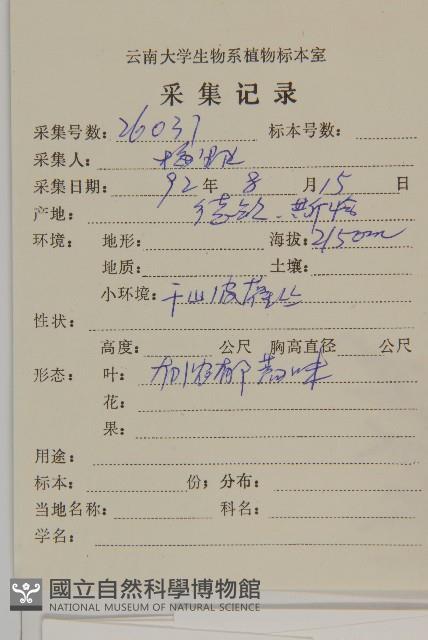 云南大学生物系植物标本室
采集记录
采集号数: 26031 标本号数:
采集人:
采集日期: 92 年 8 月 15 日
产地: 德钦、
环境: 地形: 海拔: 2150m
地质: 土壤:
小环境: 干山坡灌丛
性状:
高度: 公尺 胸高直径 公尺
形态: 叶: 有浓郁 味
花:
果:
用途:
标本: 份; 分布:
当地名称: 科名:
学名:
國立自然科學博物館
NATIONAL MUSEUM OF NATURAL SCIENCE